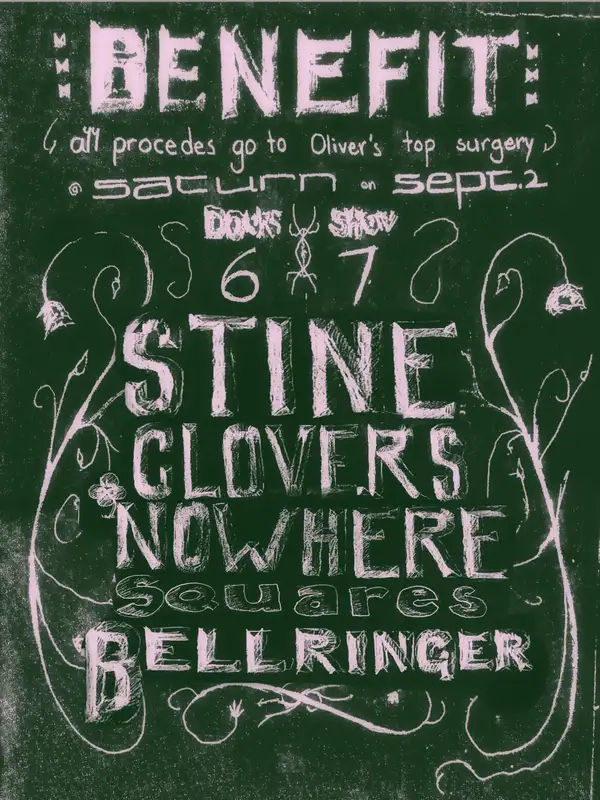 BENEFIT
(all procedes go to Oliver's top surgery)
@ saturn on sept. 2
DOORS SHOW
6 7
STINE
CLOVERS
NOWHERE
Squares
BELLRINGER